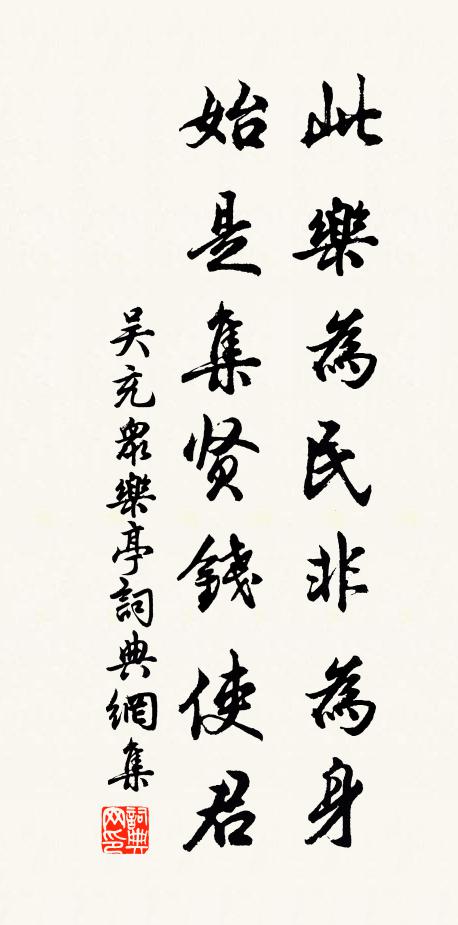 此樂為民非為身
始是集贤錢使君
吴充眾樂亭詞典網集
詞典网印